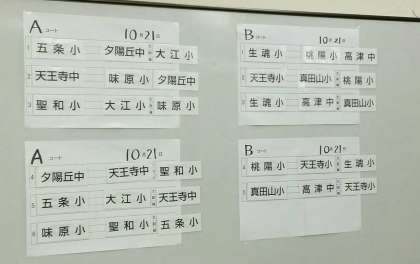 A コート 10月21日
1 五条小 夕陽丘中 大江小
2 天王寺中 味原小 夕陽丘中
3 聖和小 大江小 味原小
B コート 10月21日
1 生魂小 桃陽小 高津中
2 天王寺小 真田山小 桃陽小
3 生魂小 高津中 真田山小
A コート 10月21日
4 夕陽丘中 天王寺中 聖和小
5 五条小 大江小 天王寺中
6 味原小 聖和小 五条小
B コート 10月21日
4 桃陽小 天王寺小 生魂小
5 真田山小 高津中 天王寺小